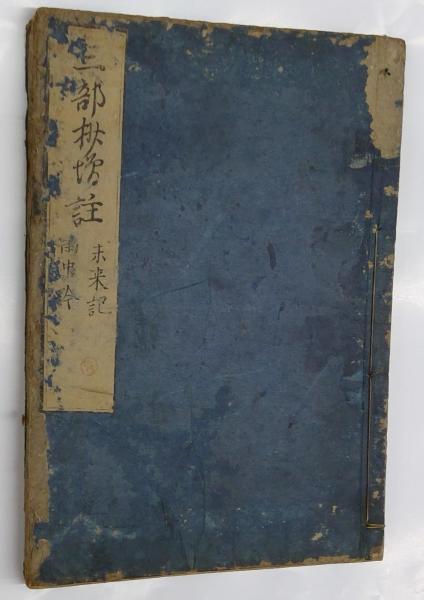 三部抄増註
未来記
雨中吟